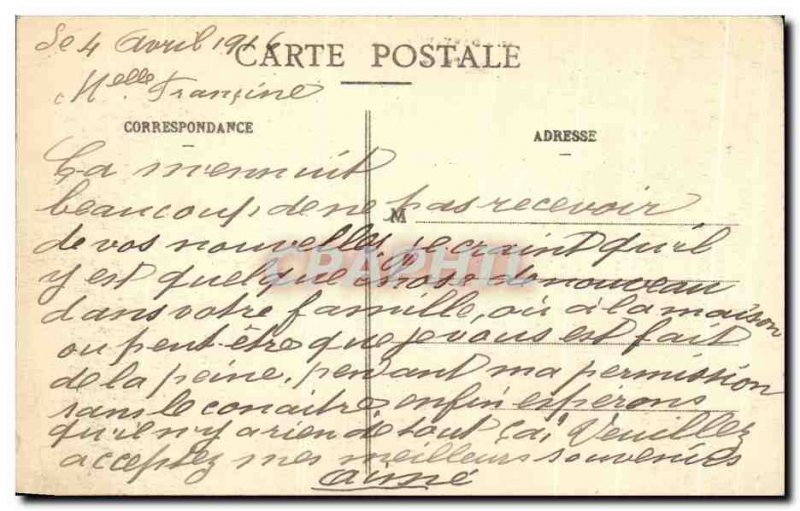 Le 4 Avril 1916
CARTE POSTALE
Melle Françine
CORRESPONDANCE
ADRESSE
Ca m'ennuit
beaucoup, de ne pas recevoir
M
de vos nouvelles, je craint qu'il
y est quelque chose de nouveau
dans votre famille, où à la maison
ou peut-être que je vous est fait
de la peine, pendant ma permission
sans le conaitre, enfin espérons
qu'il n'y a rien de tout ça, Veuillez
acceptez mes meilleurs souvenirs
Aimé
CPAPHIL